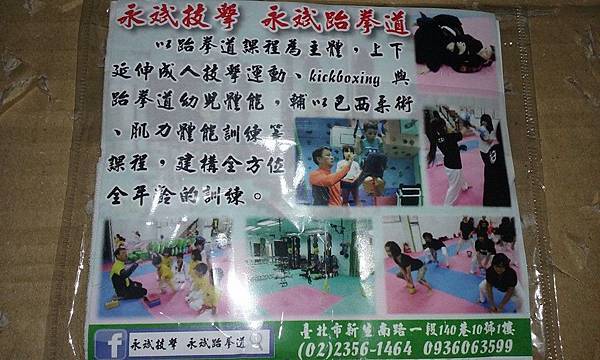 永斌技擊 永斌跆拳道
以跆拳道課程為主體，上下
延伸成人技擊運動、kickboxing 與
跆拳道幼兒體能，輔以巴西柔術
、肌力體能訓練等
課程，建構全方位
全年齡的訓練。
f 永斌技擊 永斌跆拳道
臺北市新生南路一段140巷10號1樓
(02)2356-1464 0936063599